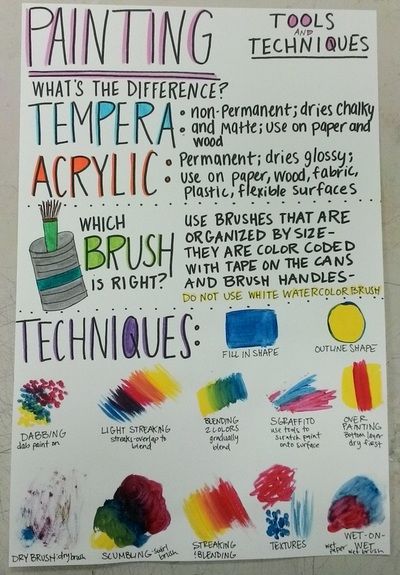 PAINTING
TOOLS
AND
TECHNIQUES
WHAT'S THE DIFFERENCE?
TEMPERA: non-permanent; dries chalky
and matte; use on paper and
wood
ACRYLIC: Permanent; dries glossy;
use on paper, wood, fabric,
plastic, flexible surfaces
WHICH
BRUSH
IS RIGHT?
USE BRUSHES THAT ARE
ORGANIZED BY SIZE-
THEY ARE COLOR CODED
WITH TAPE ON THE CANS
AND BRUSH HANDLES-
DO NOT USE WHITE WATERCOLOR BRUSH
TECHNIQUES:
FILL IN SHAPE
OUTLINE SHAPE
DABBING
dab paint on
LIGHT STREAKING
streaks-overlap to
blend
BLENDING
2 COLORS
gradually
blend
SGRAFFITO
use tools to
scratch paint
onto surface
OVER
PAINTING
Bottom layer
dry first
DRY BRUSH: dry brush
SCUMBLING-swirl
brush
STREAKING
& BLENDING
TEXTURES
WET-ON-
WET
wet
paper
wet brush